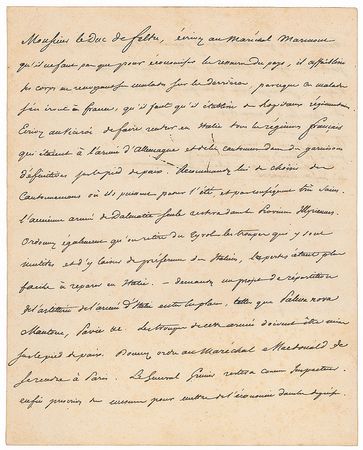 Monsieur le Duc de Feltre, écrivez au Maréchal Marmont
qu'il ne faut pas que pour économiser les ressources du pays, il affaiblisse
les corps en renvoyant malades sur les derrières, parce que un malade
qu'il faut qu'il établisse des hôpitaux régimentaires
Ecrivez au Viceroi de faire rentrer en Italie tous les régimens français
qui étaient à l'armée d'Allemagne et de les cantonner dans des garnisons
définitives sur le pied de paix. Recommandez lui de choisir des
Cantonnemens où ils puissent passer l'été et par conséquent très sains.
l'ancienne armée de Dalmatie seule restera dans les Provinces Illyriennes.
Ordonnez également qu'on retire du Tyrol les troupes qui y sont
inutiles et d'y laisser de préférence des Italiens, les pertes étant plus
faciles à réparer en Italie. — demandez un projet de répartition
de l'artillerie de l'armée d'Italie entre les places, telles que Palma nova
Mantoue, Pavie &c. Les troupes de cette armée doivent être mises
sur le pied de paix. Donnez ordre au Maréchal Macdonald de
se rendre à Paris. Le Général restera comme Inspecteur.
enfin prenez des mesures pour mettre de l'économie dans les dépenses.